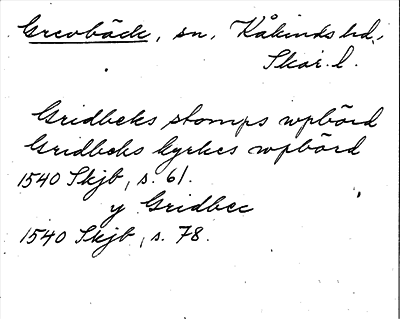 Grevbäck, sn, Kåkinds hd.,
Skar. l.
Gridbeks stomps wpbörd
Gridbeks kyrkes wpbörd
1540 Skjb, s. 61.
y Gridbec
1540 Skjb, s. 78.